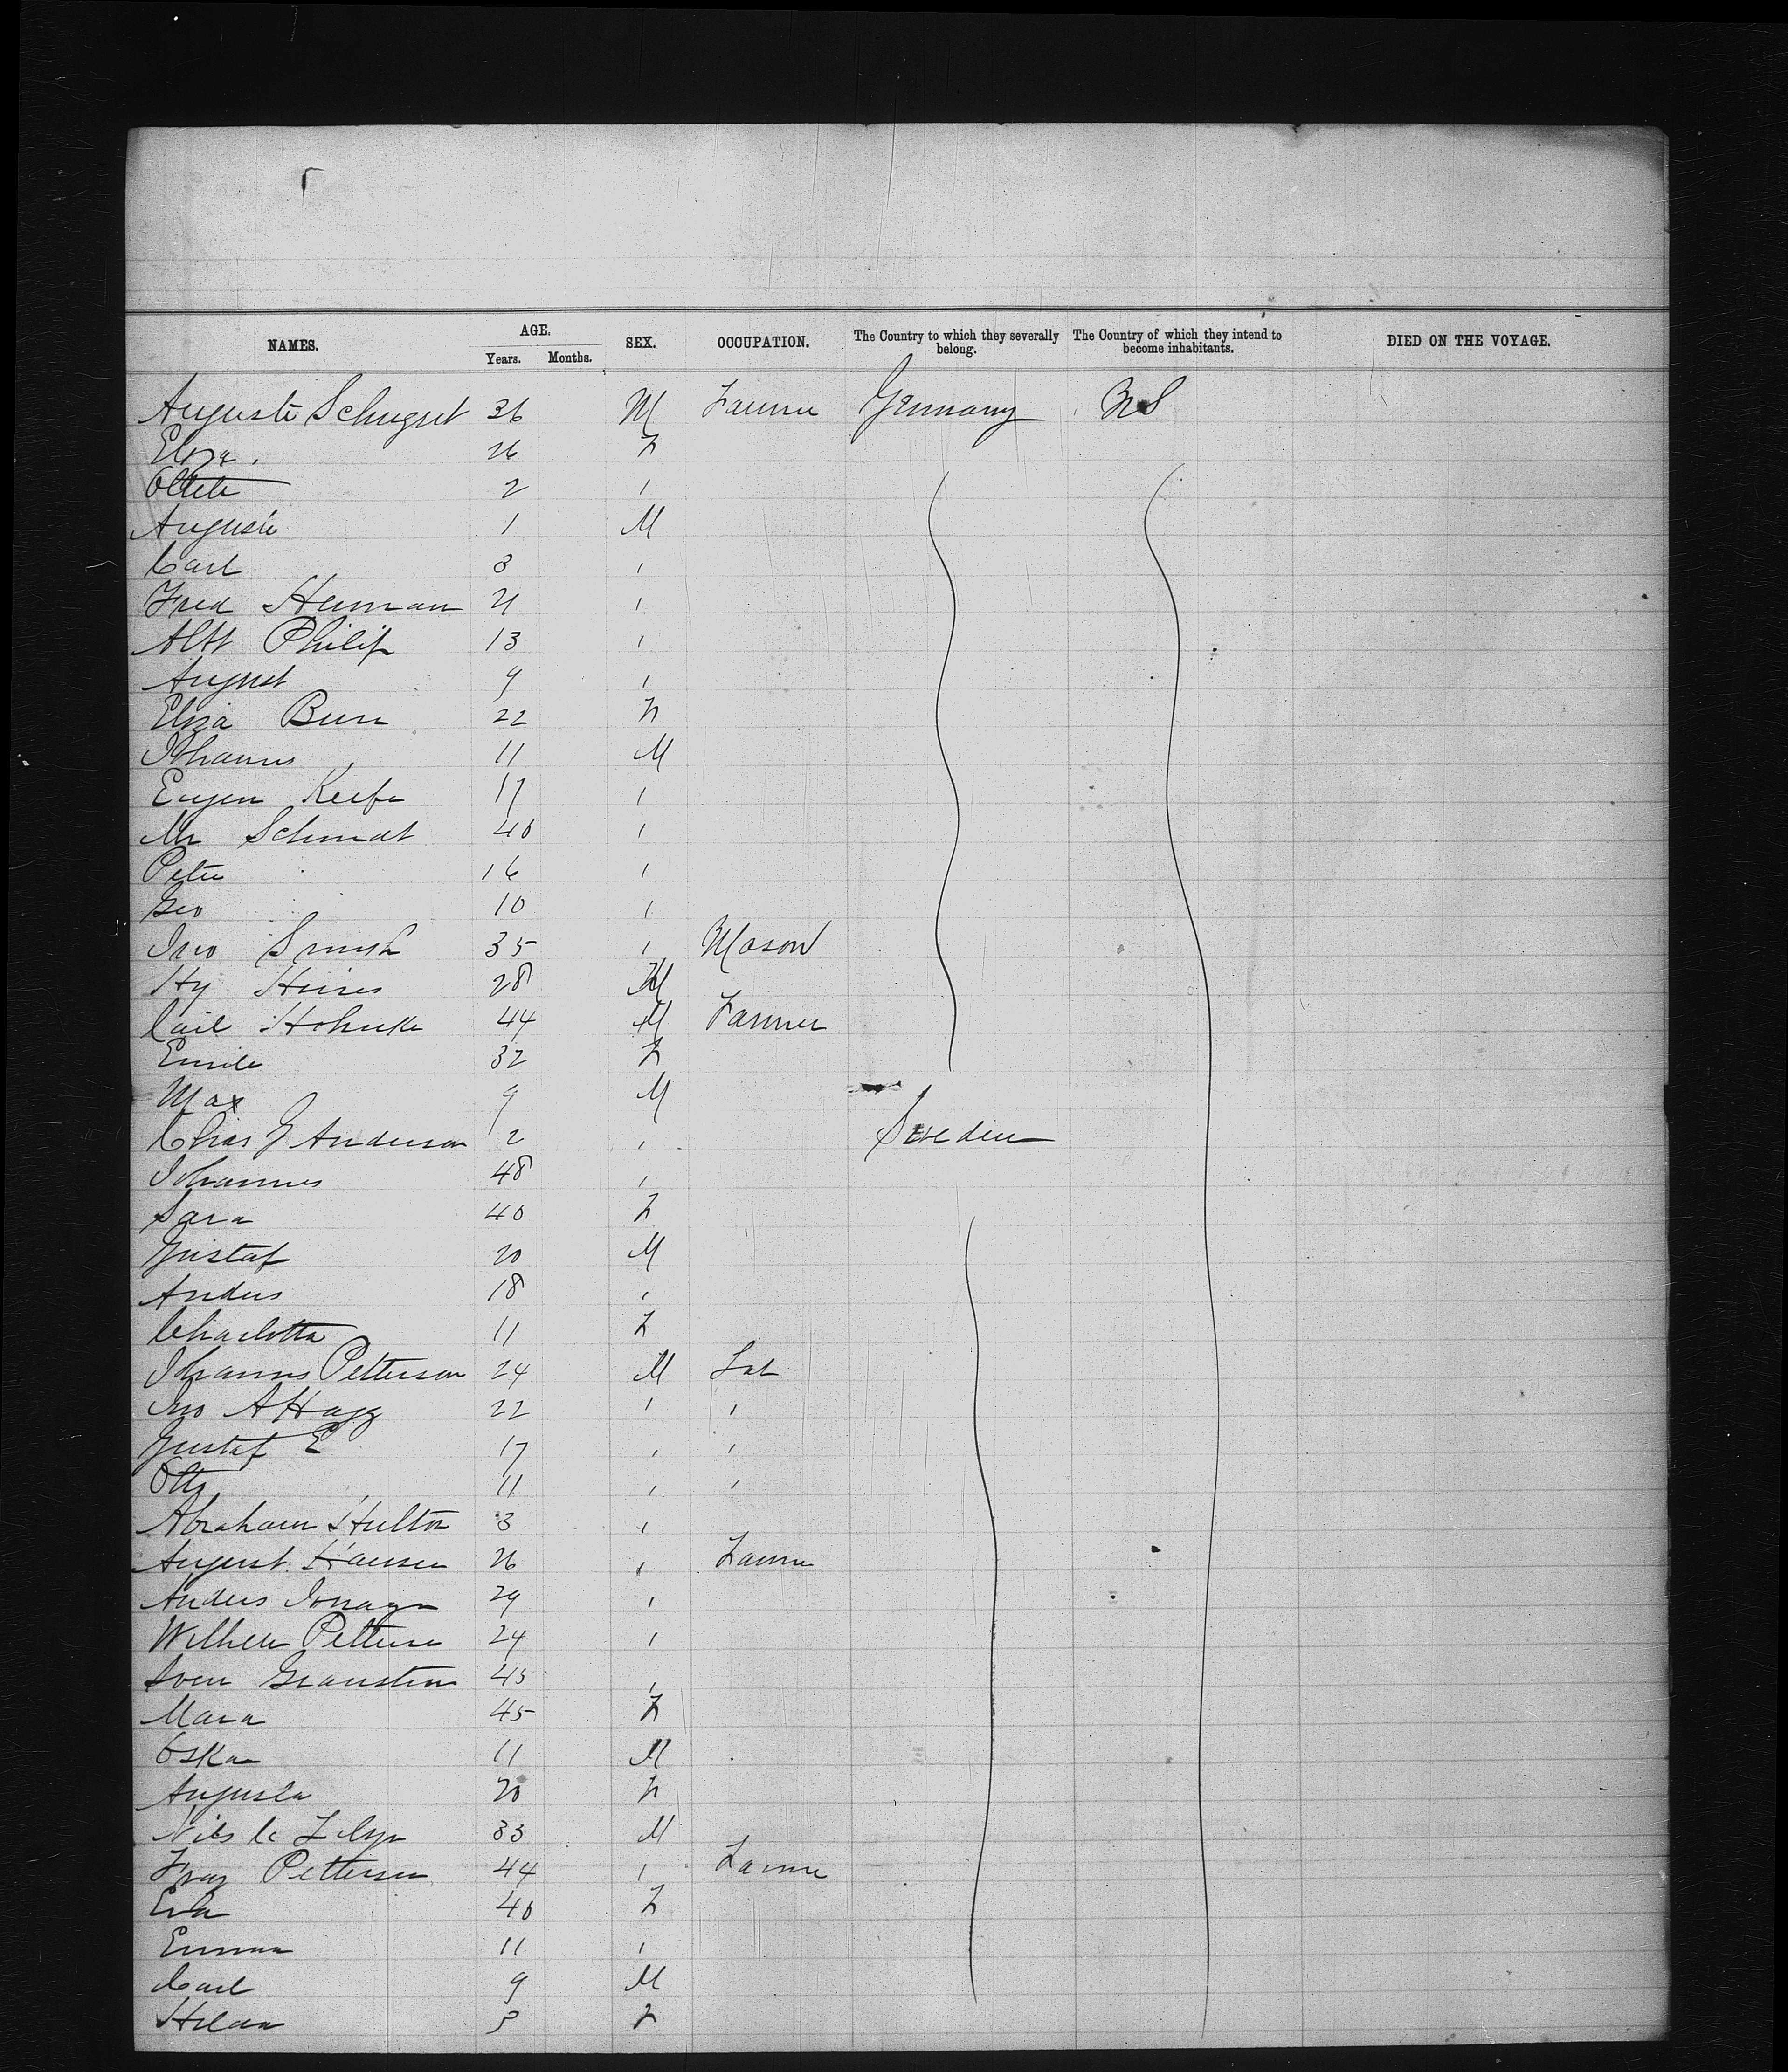 NAMES. AGE. Years. Months. SEX. OCCUPATION. The Country to which they severally belong. The Country of which they intend to become inhabitants. DIED ON THE VOYAGE.
Auguste 36 M Farmer Germany
Eliza 26 F
2 "
Auguste 1 M
Carl 3 "
Fred Herman 21 "
Philip 13 "
August 9 "
Eliza 22 F
Johannes 11 M
Eugen 17 "
Mr Schmidt 40 "
Peter 16 "
Geo 10 "
Jno Smith 35 " Mason
Hy 28 M
Carl 44 M Farmer
Emile 32 F
Max 9 M
Chas G Anderson 2 " Sweden
Johannes 48 "
Sara 40 F
Gustaf 20 M
Anders 18 "
Charlotta 11 F
Johannes Petterson 24 M
Jno A Hagg 22 " "
Gustaf E 17 " "
Otto 11 " "
Abraham Hulton 3 "
August Hansen 26 " Farmer
Anders 29 "
Wilhelm 24 "
Sven 45 "
Maria 45 F
Oskar 11 M
Augusta 20 F
Nils 33 M
Franz Petterson 44 " Farmer
Eva 40 F
Emma 11 "
Carl 9 M
Hilda 5 F